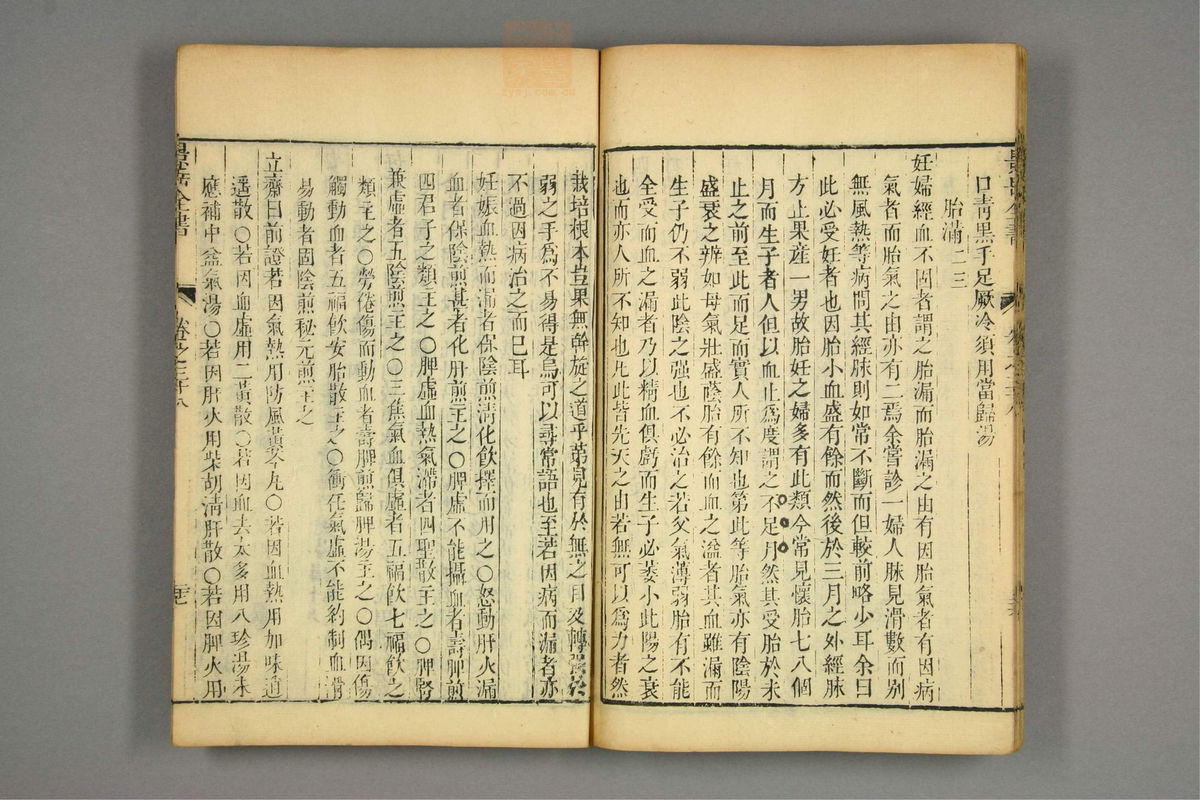 口青黑手足厥冷須用當歸湯
胎漏二三
妊婦經血不固者謂之胎漏而胎漏之由有因胎氣者有因病
氣者而胎氣之由亦有二焉余嘗診一婦人脉見滑數而別
無風熱等病問其經脉則如常不斷而但較前略少耳余曰
此必受妊者也因胎小血盛有餘而然後於三月之外經脉
方止果産一男故胎妊之婦多有此類今常見懷胎七八個
月而生子者人但以血止爲度謂之不足月然其受胎於未
止之前至此而足而實人所不知也第此等胎氣亦有陰陽
盛衰之辨如母氣壯盛蔭胎有餘而血之溢者其血雖漏而
生子仍不弱此陰之强也不必治之若父氣薄弱胎有不能
全受而血之漏者乃以精血俱虧而生子必萎小此陽之衰
也而亦人所不知也凡此皆先天之由若無可以爲力者然
栽培根本豈果無斡旋之道乎第見有於無之目及轉强於
弱之手爲不易得是烏可以尋常語也至若因病而漏者亦
不過因病治之而已耳
妊娠血熱而漏者保陰煎清化飲擇而用之○怒動肝火漏
血者保陰煎甚者化肝煎主之○脾虛不能攝血者壽脾煎
四君子之類主之○脾虛血熱氣滯者四聖散主之○脾腎
兼虛者五陰煎主之○三焦氣血俱虛者五福飲七福飲之
類主之○勞倦傷而動血者壽脾煎歸脾湯主之○偶因傷
觸動血者五福飲安胎散主之○衝任氣虛不能約制血滑
易動者固陰煎秘元煎主之
立齋曰前證若因氣熱用防風黃芩丸○若因血熱用加味逍
遙散○若因血虛用二黃散○若因血去太多用八珍湯未
應補中益氣湯○若因肝火用柴胡清肝散○若因脾火用
景岳全書
卷之三十八